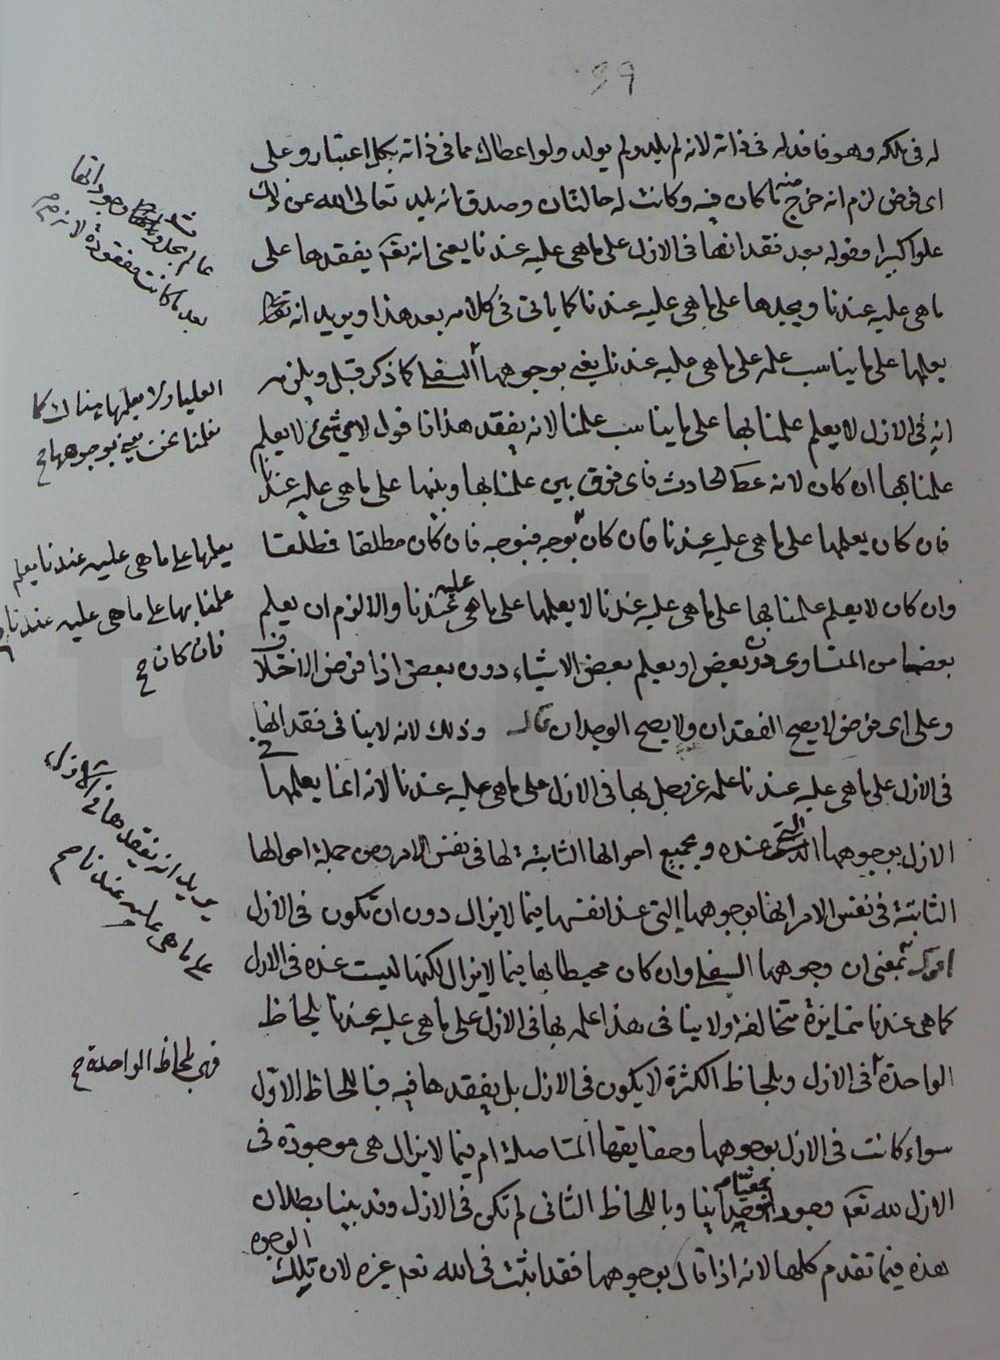 99
له فى ملكه وهو فاقد له فى ذاته لانه لم يلد ولم يولد ولو اعطاك مما فى ذاته بكل اعتبار وعلى
اى فرض لزم انه خرج منه ما كان فيه وكانت له حالتان وصدق انه يلد تعالى الله عن ذلك
علوا كبيرا وقوله بعد فقدانها فى الازل على ما هى عليه عندنا يعنى انه تعالى يفقدها على
ما هى عليه عندنا ويجدها على ما هى عليه عندنا كما ياتى فى كلامه بعد هذا ويريد انه تعالى
يعلمها على ما يناسب علمه على ما هى عليه عندنا يعنى بوجوهها السفلى كما ذكر قبل ويلزمه
انه فى الازل لا يعلم علمنا بها على ما يناسب علمنا لانه يفقد هذا فاقول لاى شئ لا يعلم
علمنا بها ان كان لانه الحادث فاى فرق بين علمنا بها وبينها على ما هى عليه عندنا
فان كان يعلمها على ما هى عليه عندنا فان كان بوجه فبوجه فان كان مطلقا فطلقا
وان كان لا يعلم علمنا بها على ما هى عليه عندنا لا يعلمها على ما هى عليه عندنا والا لزم ان يعلم
بعضا من المتساوى دون بعض او يعلم بعض الاشياء دون بعض اذا فرض الاختلاف
وعلى اى فرض لا يصح الفقدان ولا يصح الوجدان قال وذلك لانه لا ينافى فقدانها
فى الازل على ما هى عليه عندنا علمه عز وجل بها فى الازل على ما هى عليه عندنا لانه انما يعلمها فى
الازل بوجوهها التى عنده وبجميع احوالها الثابتة لها فى نفس الامر ومن جملة احوالها
الثابتة فى نفس الامر انها بوجوهها التى عند انفسها فيما لا يزال دون ان تكون فى الازل
اقول بمعنى ان وجوهها السفلى وان كان محيطا بها فيما لا يزال لكنها ليست عنده فى الازل
كما هى عندنا متمايزة متخالفة ولا ينافى هذا علمه بها فى الازل على ما هى عليه عندنا بلحاظ
الواحدة فى الازل وبلحاظ الكثرة لا يكون فى الازل بل يفقدها فيه فباللحاظ الاول
سواء كانت فى الازل بوجوهها وحقايقها المتاصلة ام فيما لا يزال هى موجودة فى
الازل لله تعالى وجودا وباللحاظ الثانى لم تكن فى الازل وقد بينا بطلان
هذه فيما تقدم كلها لانه اذا قال بوجوهها فقد اثبت فى الله تعالى غيره لان تلك الوجوه
عالم وجودها
بعد ما كانت مفقودة لانه
العليا ولا يعلمها هناك كما
نعلمها نحن يعنى بوجوهها صح
يعلمها على ما هى عليه عندنا يعلم
علمنا بها على ما هى عليه عندنا
فان كان صح
يريد انه يفقدها فى الازل
على ما هى عليه عندنا صح
فهى بلحاظ الواحدة صح